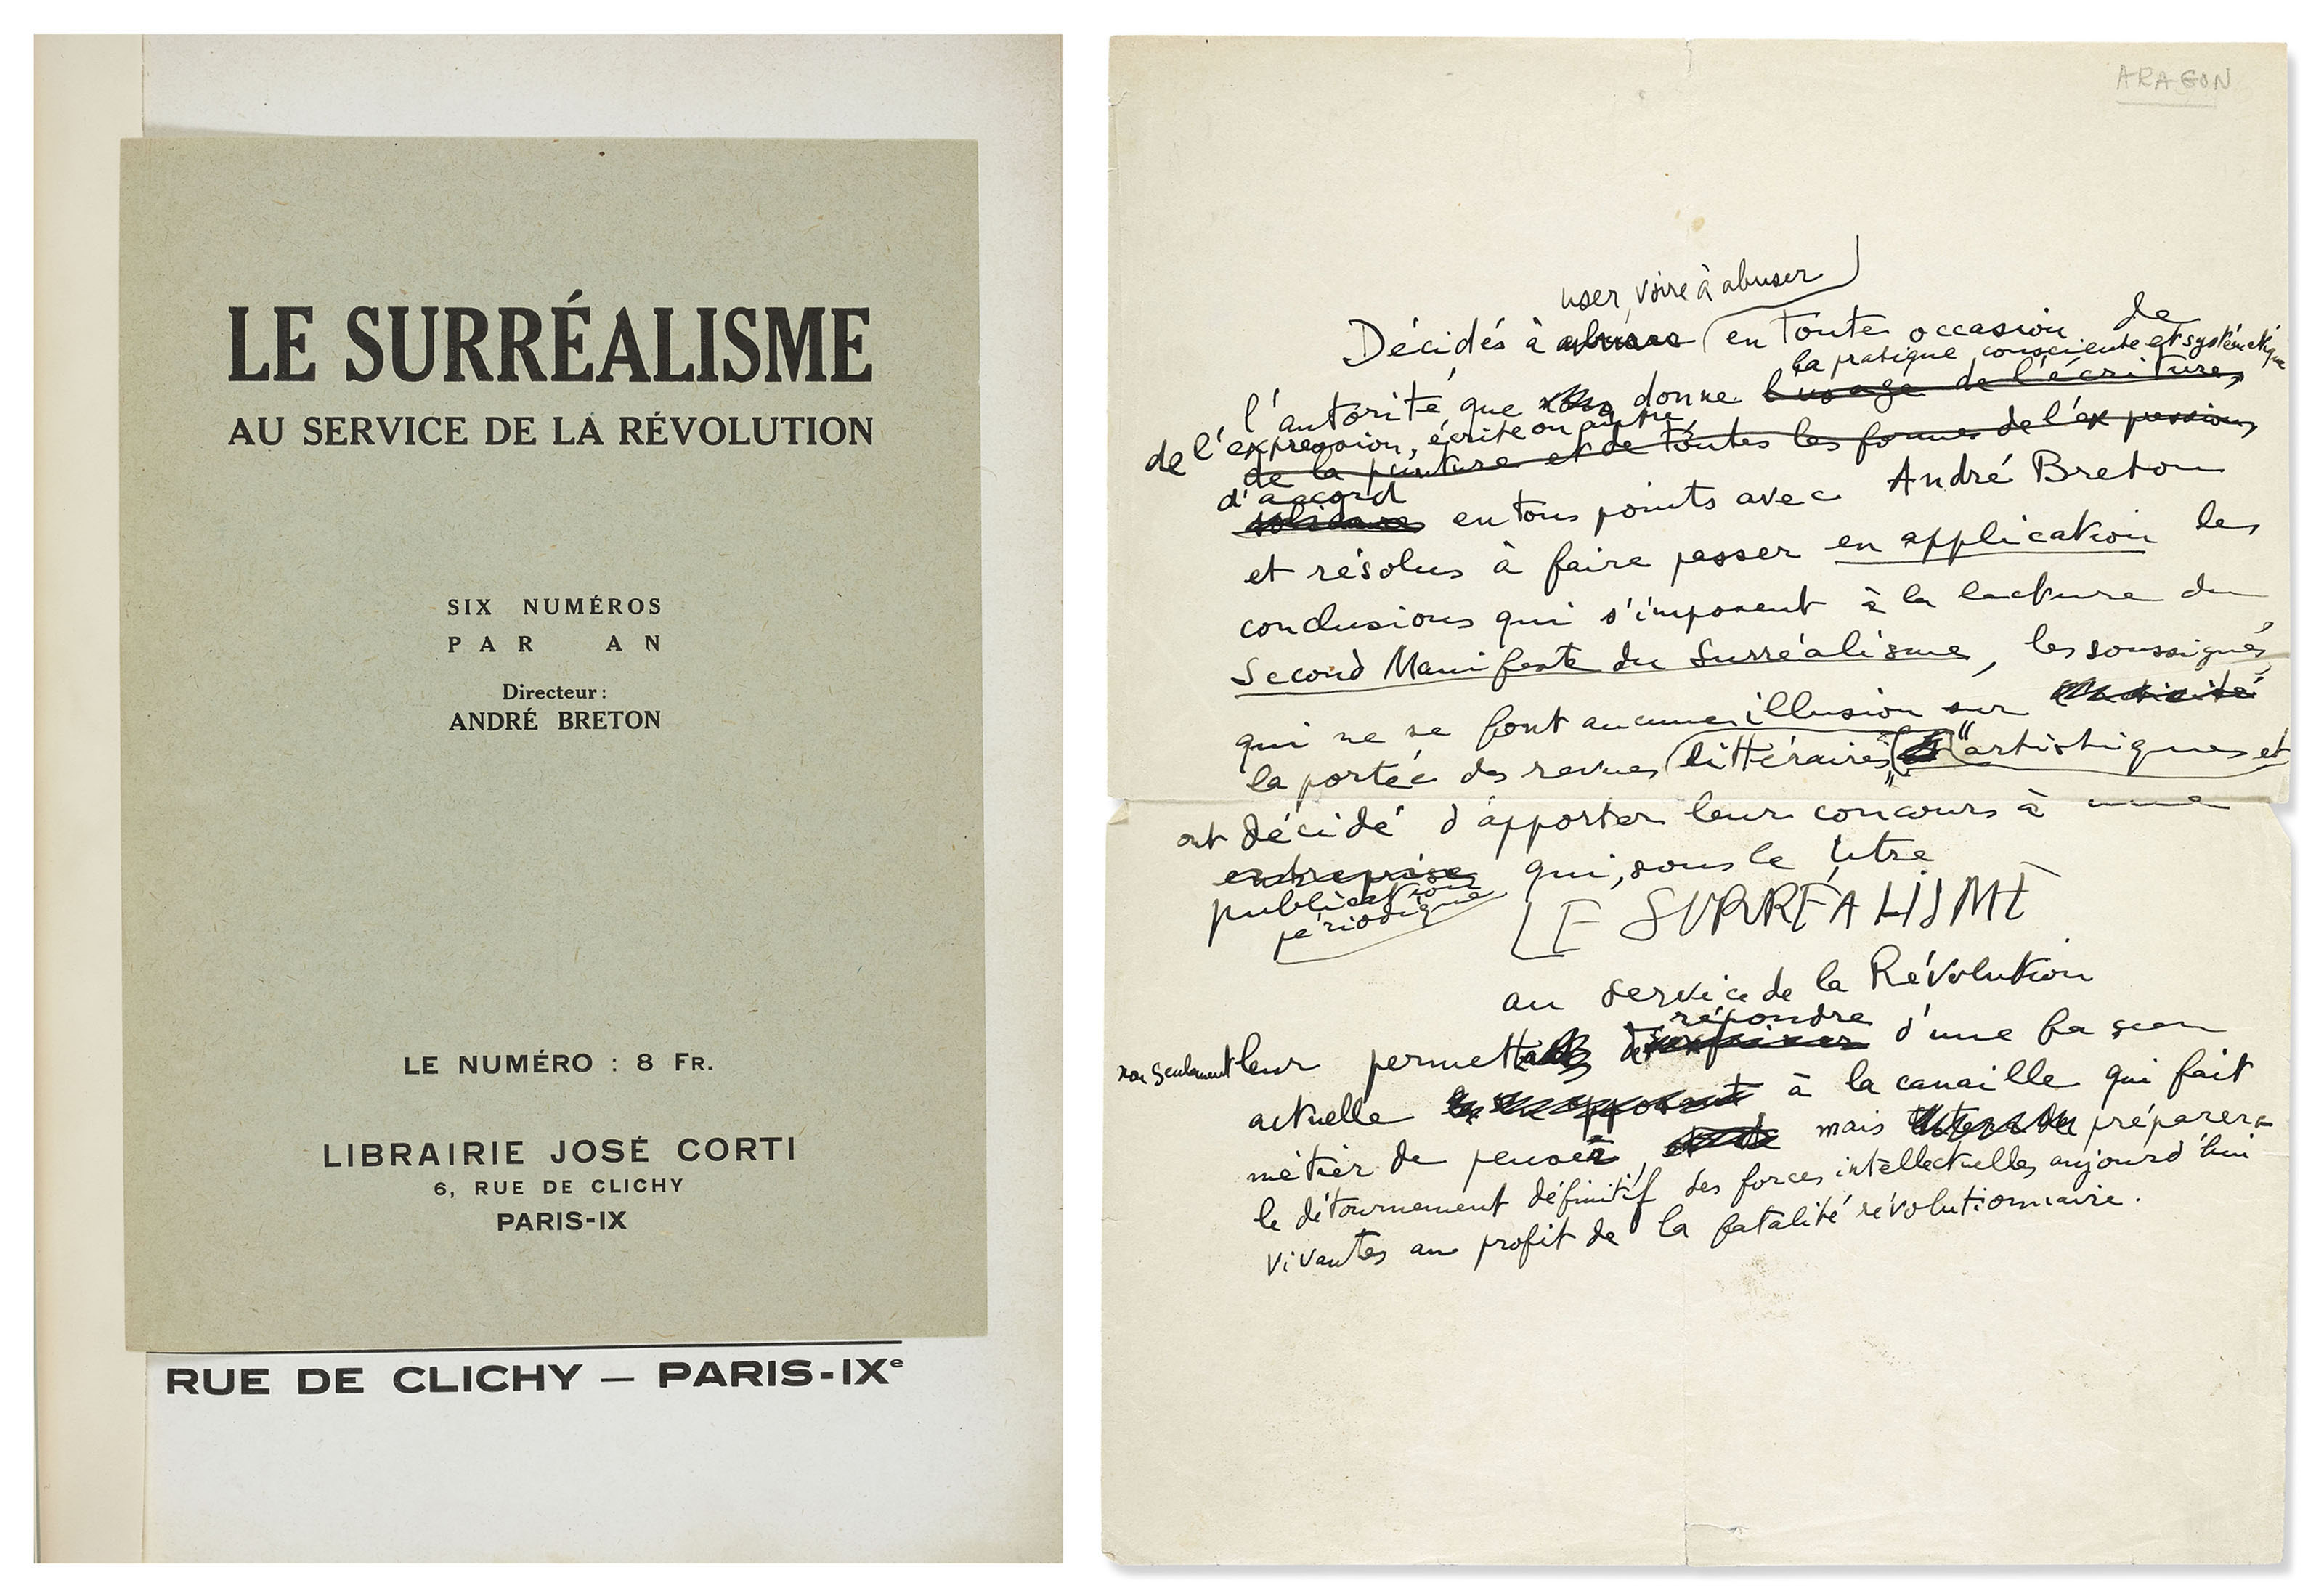 LE SURRÉALISME
AU SERVICE DE LA RÉVOLUTION
SIX NUMÉROS
PAR AN
Directeur :
ANDRÉ BRETON
LE NUMÉRO : 8 FR.
LIBRAIRIE JOSÉ CORTI
6, RUE DE CLICHY
PARIS-IX
RUE DE CLICHY — PARIS-IXe
ARAGON
user, voire à abuser
Décidés à abuser en toute occasion de
la pratique consciente et systématique
l'autorité que donne l'usage de l'écriture,
de l'expression, écrite ou autre,
de la peinture et de toutes les formes de l'expression,
d'accord
solidaires en tous points avec André Breton
et résolus à faire passer en application les
conclusions qui s'imposent à la lecture du
Second Manifeste du Surréalisme, les soussignés,
qui ne se font aucune illusion sur
la portée des revues "littéraires" "artistiques et
ont décidé d'apporter leur concours à une
entreprise qui, sous le titre
publication
périodique
LE SURRÉALISME
au service de la Révolution
répondre
non seulement leur permettra de d'une façon
actuelle à la canaille qui fait
métier de penser, mais préparera
le détournement définitif des forces intellectuelles aujourd'hui
vivantes au profit de la fatalité révolutionnaire.